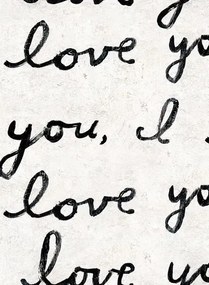 love yo
you, I
love yo
love yo